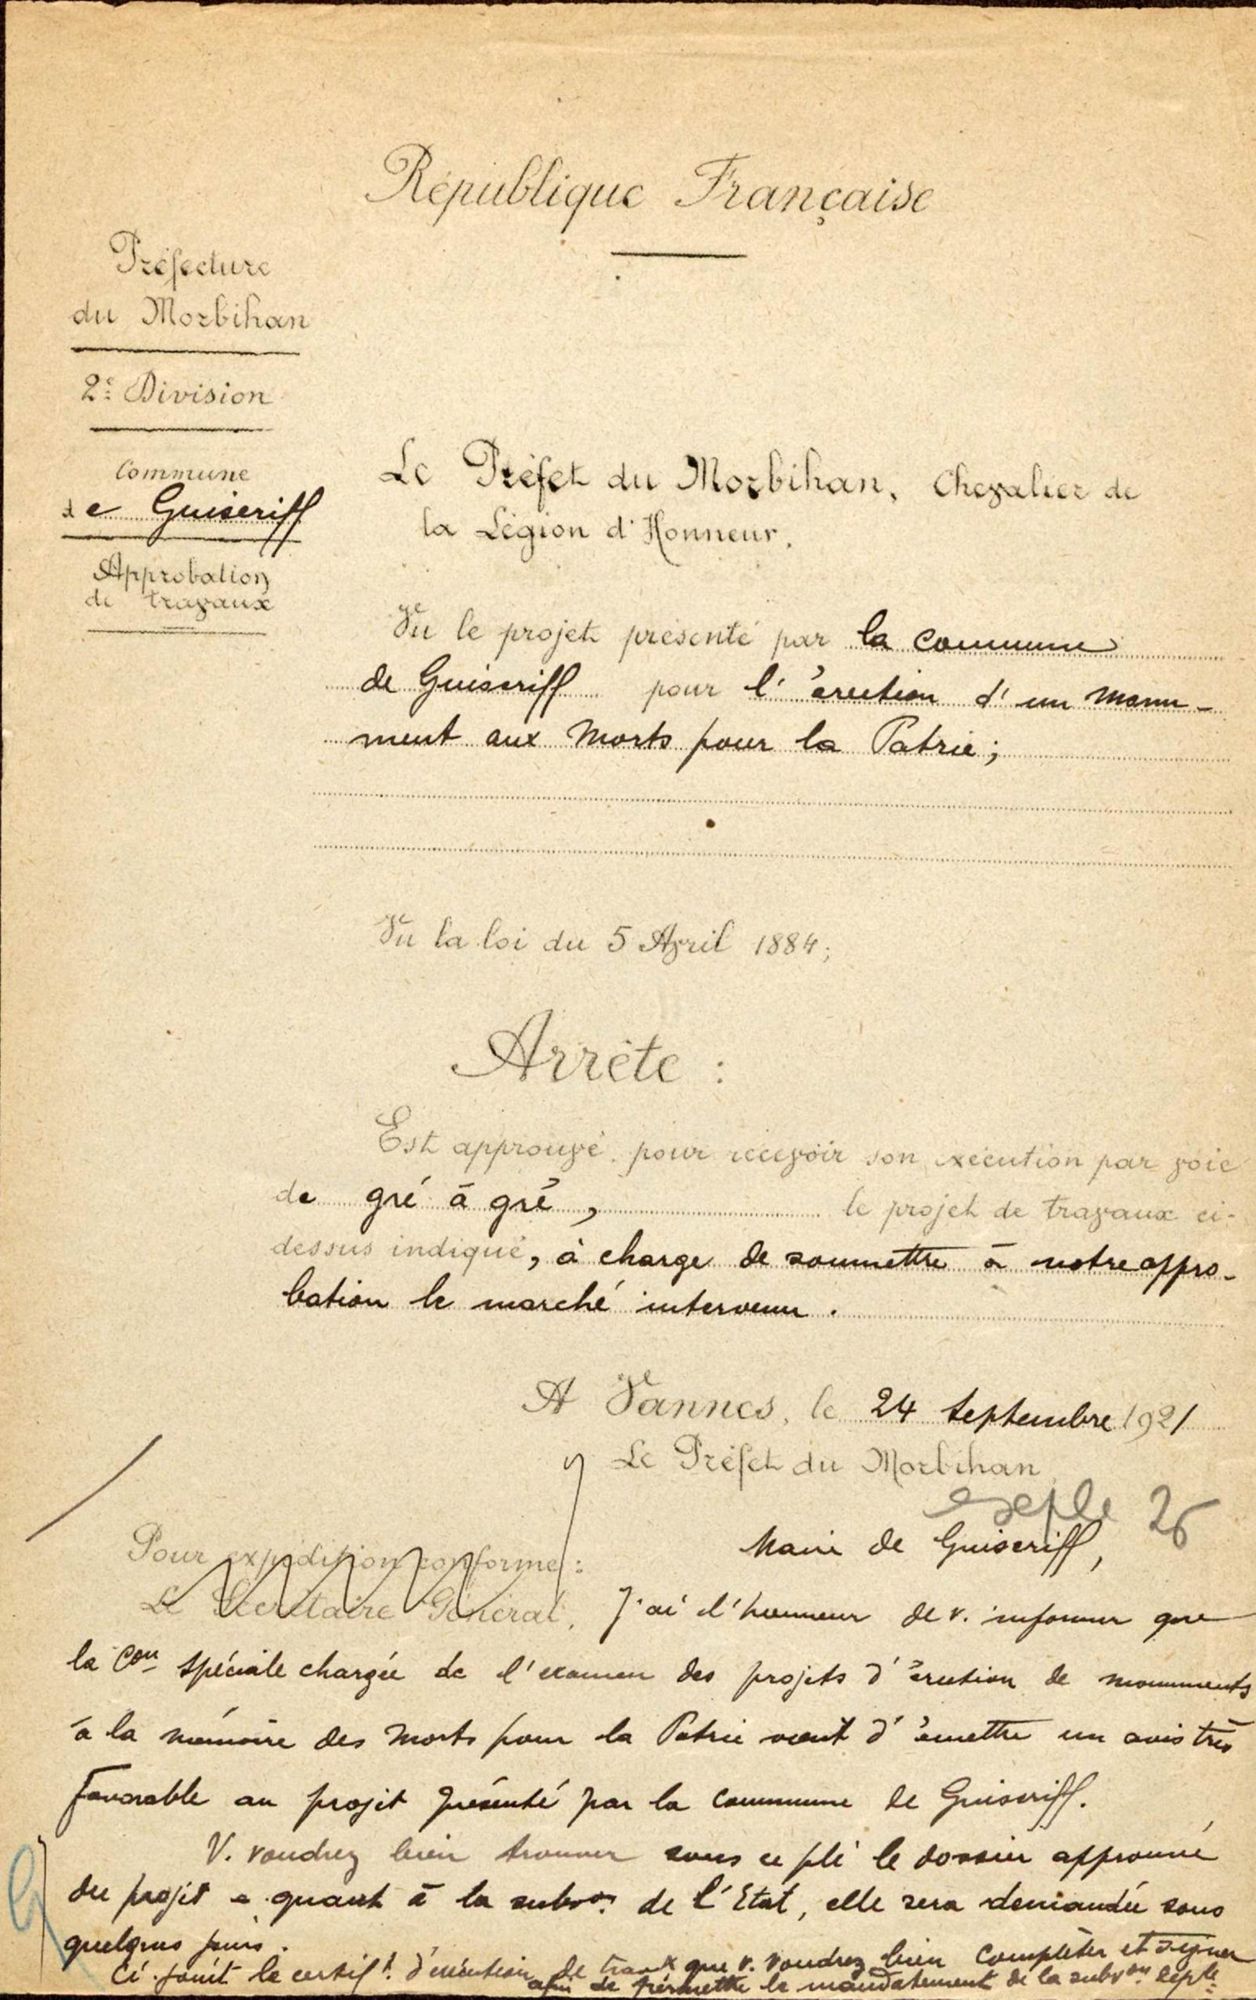 République Française
Préfecture
du Morbihan
2e Division
Commune
de Guiscriff
Approbation
de travaux
Le Préfet du Morbihan, Chevalier de
la Légion d'Honneur.
Vu le projet présenté par la commune
de Guiscriff pour l'érection d'un monu-
ment aux Morts pour la Patrie;
Vu la loi du 5 Avril 1884;
Arrête :
Est approuvé, pour recevoir son exécution par voie
de gré à gré, le projet de travaux ci-
dessus indiqué, à charge de soumettre à notre appro-
bation le marché intervenu.
A Vannes, le 24 Septembre 1921
Le Préfet du Morbihan
26
Maire de Guiscriff,
Pour expédition conforme :
Le Secrétaire Général,
J'ai l'honneur de v. informer que
la Con spéciale chargée de l'examen des projets d'érection de monuments
à la mémoire des Morts pour la Patrie vient d'émettre un avis très
favorable au projet présenté par la commune de Guiscriff.
V. voudrez bien trouver sous ce pli le dossier approuvé
du projet quant à la subvon de l'Etat, elle sera demandée sous
quelques jours.
Ci-joint le certift d'exécution de traux que v. voudrez bien compléter et signer
afin de permettre le mandatement de la subvon